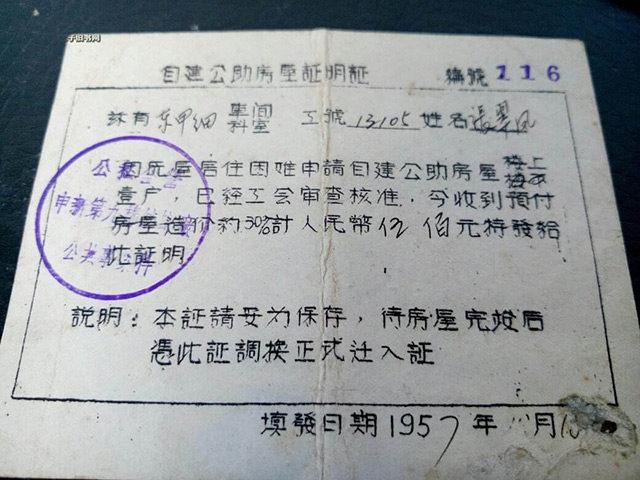 自建公助房屋証明証 編號 116
茲有东甲细 車间科室 工號 13105 姓名 張翠凤
因无屋居住困难申請自建公助房屋 楼上
壹户，已經工会审查核准，今收到預付
房屋造价約30%計人民幣伍佰元特發給
此証明
説明：本証請妥为保存，待房屋完竣后
憑此証調換正式迁入証
填發日期1957年 月
公私合營
申新第九